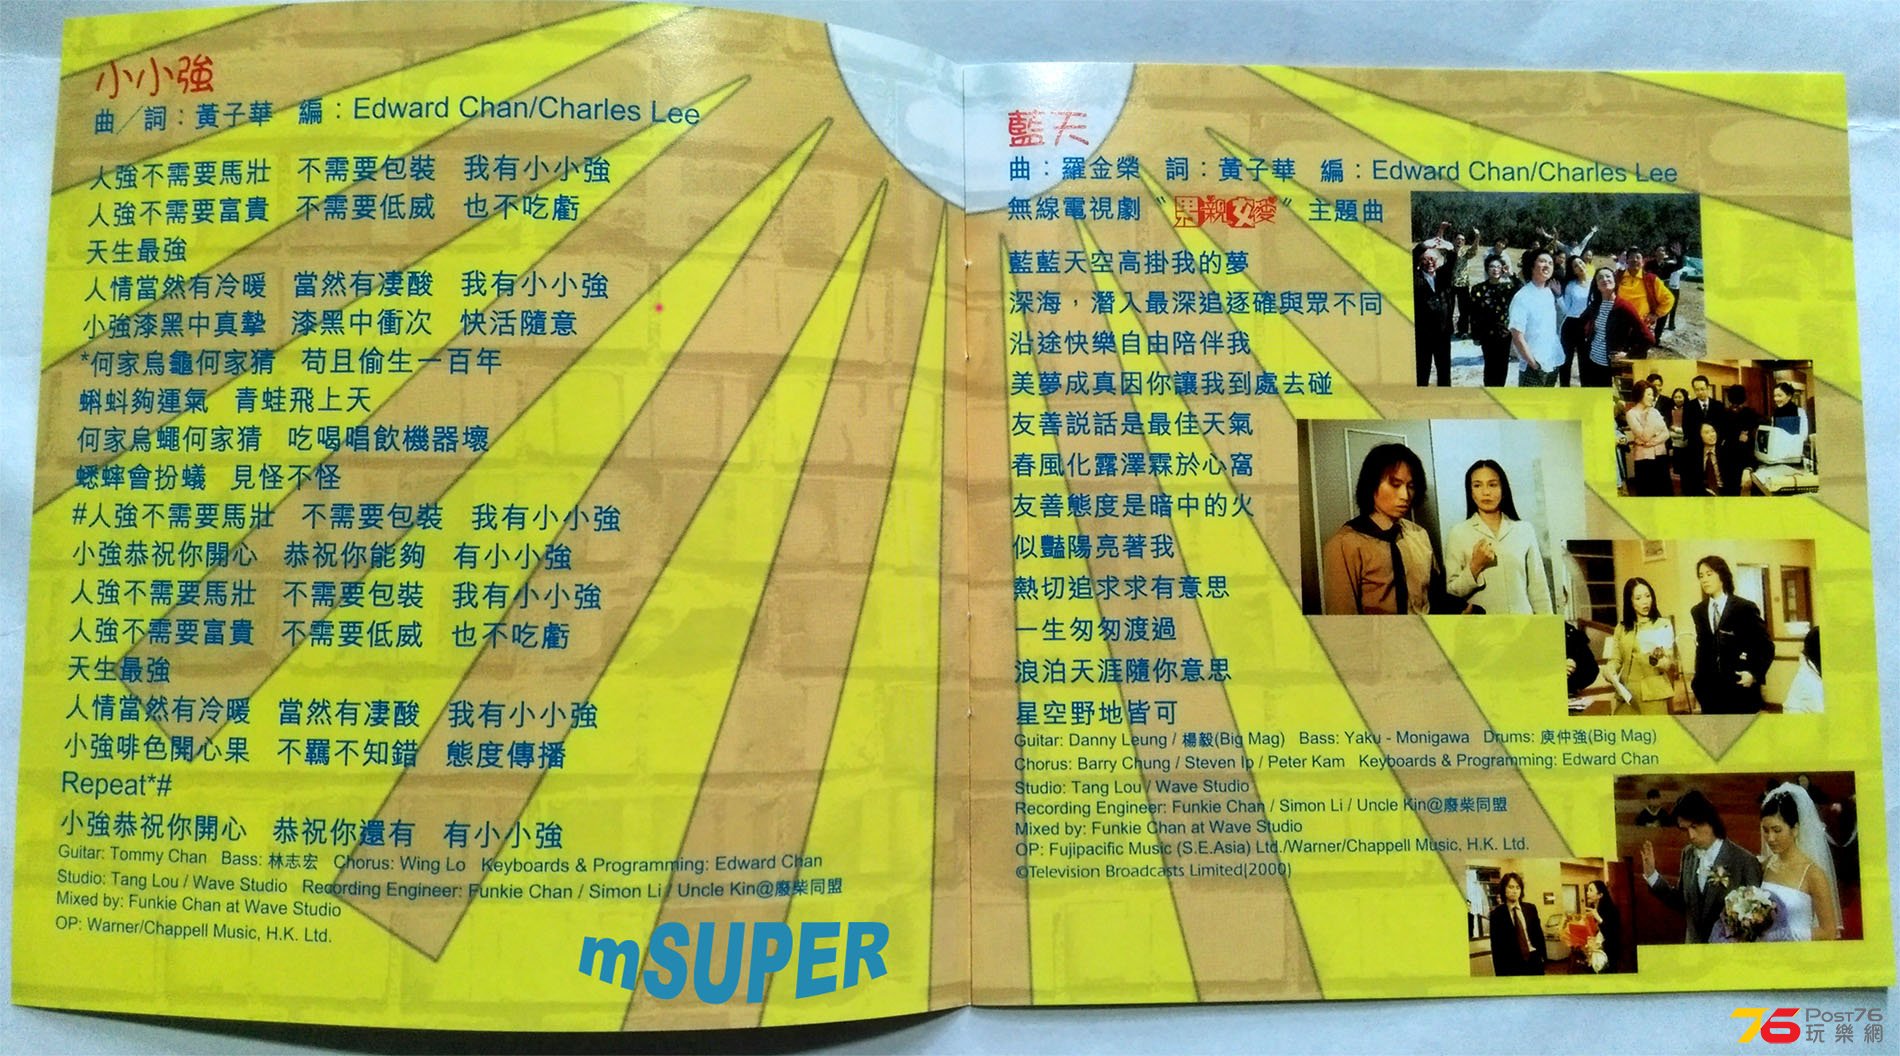 小小強
曲／詞：黃子華　編：Edward Chan/Charles Lee
人強不需要馬壯　不需要包裝　我有小小強
人強不需要富貴　不需要低威　也不吃虧
天生最強
人情當然有冷暖　當然有凄酸　我有小小強
小強漆黑中真摯　漆黑中衝次　快活隨意
*何家烏龜何家猜　苟且偷生一百年
蝌蚪夠運氣　青蛙飛上天
何家烏蠅何家猜　吃喝唱飲機器壞
蟋蟀會扮蟻　見怪不怪
#人強不需要馬壯　不需要包裝　我有小小強
小強恭祝你開心　恭祝你能夠　有小小強
人強不需要馬壯　不需要包裝　我有小小強
人強不需要富貴　不需要低威　也不吃虧
天生最強
人情當然有冷暖　當然有凄酸　我有小小強
小強啡色開心果　不羈不知錯　態度傳播
Repeat*#
小強恭祝你開心　恭祝你還有　有小小強
Guitar: Tommy Chan　Bass: 林志宏　Chorus: Wing Lo　Keyboards & Programming: Edward Chan
Studio: Tang Lou / Wave Studio　Recording Engineer: Funkie Chan / Simon Li / Uncle Kin@廢柴同盟
Mixed by: Funkie Chan at Wave Studio
OP: Warner/Chappell Music, H.K. Ltd.
mSUPER
藍天
曲：羅金榮　詞：黃子華　編：Edward Chan/Charles Lee
無線電視劇“男親女愛”主題曲
藍藍天空高掛我的夢
深海，潛入最深追逐確與眾不同
沿途快樂自由陪伴我
美夢成真因你讓我到處去碰
友善説話是最佳天氣
春風化露澤霖於心窩
友善態度是暗中的火
似豔陽亮著我
熱切追求求有意思
一生匆匆渡過
浪泊天涯隨你意思
星空野地皆可
Guitar: Danny Leung / 楊毅(Big Mag)　Bass: Yaku - Monigawa　Drums: 庾仲強(Big Mag)
Chorus: Barry Chung / Steven Ip / Peter Kam　Keyboards & Programming: Edward Chan
Studio: Tang Lou / Wave Studio
Recording Engineer: Funkie Chan / Simon Li / Uncle Kin@廢柴同盟
Mixed by: Funkie Chan at Wave Studio
OP: Fujipacific Music (S.E.Asia) Ltd./Warner/Chappell Music, H.K. Ltd.
©Television Broadcasts Limited(2000)
76 Post76
玩樂網